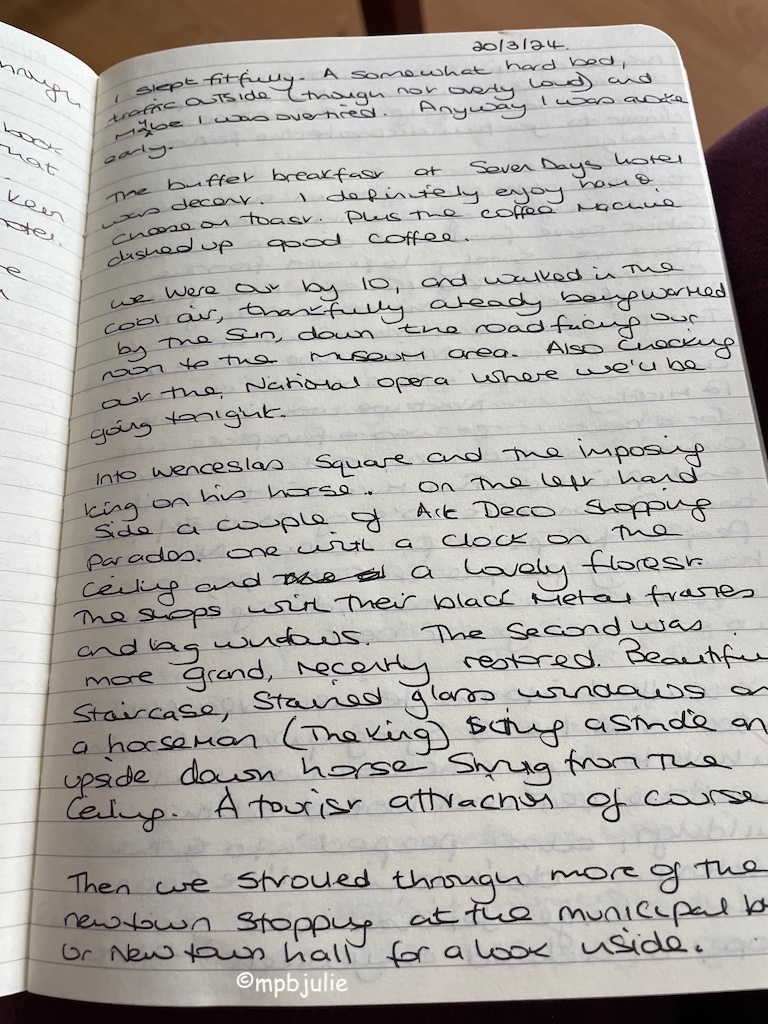 hrough
ook
hat
keen
20/3/24.
I slept fitfully. A somewhat hard bed,
traffic outside (though not overly loud) and
maybe I was overtired. Anyway I was awake
early.
The buffet breakfast at Seven Days hotel
was decent. I definitely enjoy ham &
cheese on toast. Plus the coffee machine
dished up good coffee.
We were out by 10, and walked in the
cool air, thankfully already being warmed
by the sun, down the road facing our
room to the museum area. Also checking
out the National Opera where we'll be
going tonight.
Into Wenceslas Square and the imposing
king on his horse. On the left hand
side a couple of Art Deco shopping
parades. One with a clock on the
ceiling and a lovely florist.
The shops with their black metal frames
and big windows. The second was
more grand, recently restored. Beautiful
staircase, stained glass windows an
a horseman (the king) sitting astride an
upside down horse slung from the
ceiling. A tourist attraction of course
Then we strolled through more of the
newtown stopping at the municipal
or New town hall for a look inside.
©mpbjulie